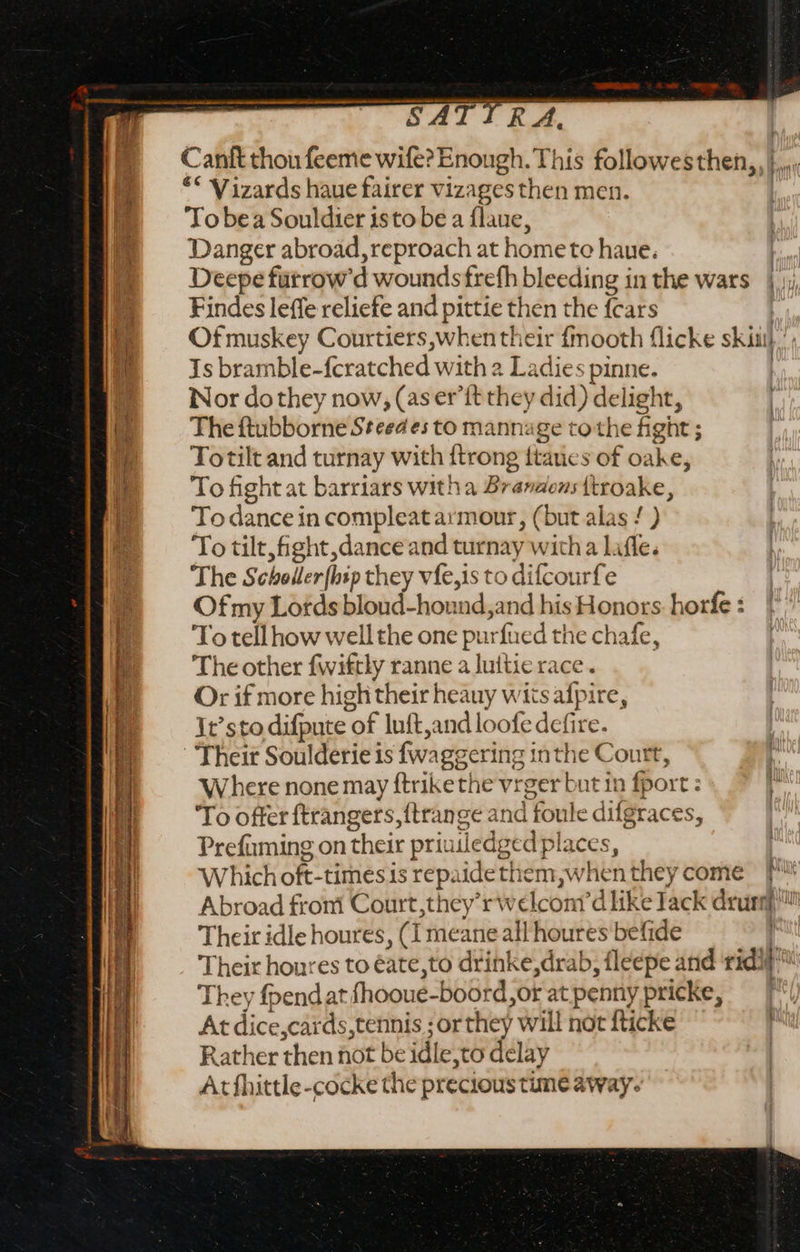 SATYRA.
Canſt thou ſeeme wiſe? Enough. This followes then,
“ Vizards haue fairer vizages then men.
To be a Souldier is to be a ſlaue,
Danger abroad, reproach at home to haue.
Deepe furrow'd wounds freſh bleeding in the wars
Findes leſſe reliefe and pittie then the ſcars
Of muskey Courtiers, when their ſmooth ſlicke skin
Is bramble-ſcratched with a Ladies pinne.
Nor do they now, (as er'ſt they did) delight,
The ſtubborne Steedes to mannage to the fight;
To tilt and turnay with ſtrong ſtaues of oake,
To fight at barriars with a Brandons ſtroake,
To dance in compleat armour, (but alas!)
To tilt, fight, dance and turnay with a laſſe.
The Schollerſhip they vſe, is to diſcourſe
Of my Lords bloud-hound, and his Honors horſe:
To tell how well the one purſued the chaſe,
The other ſwiftly ranne a luſtie race.
Or if more high their heauy wits aſpire,
It's to diſpute of luſt, and looſe deſire.
Their Soulderie is ſwaggering in the Court,
Where none may ſtrike the vrger but in ſport:
To offer ſtrangers, ſtrange and foule diſgraces,
Preſuming on their priuiledged places,
Which oft-times is repaide them, when they come
Abroad from Court, they'r welcom'd like Iack drum
Their idle houres, (I meane all houres beſide
Their houres to eate, to drinke, drab, ſleepe and ride
They ſpend at ſhooue-boord, or at penny pricke,
At dice, cards, tennis; or they will not ſticke
Rather then not be idle, to delay
At ſhittle-cocke the precious time away.